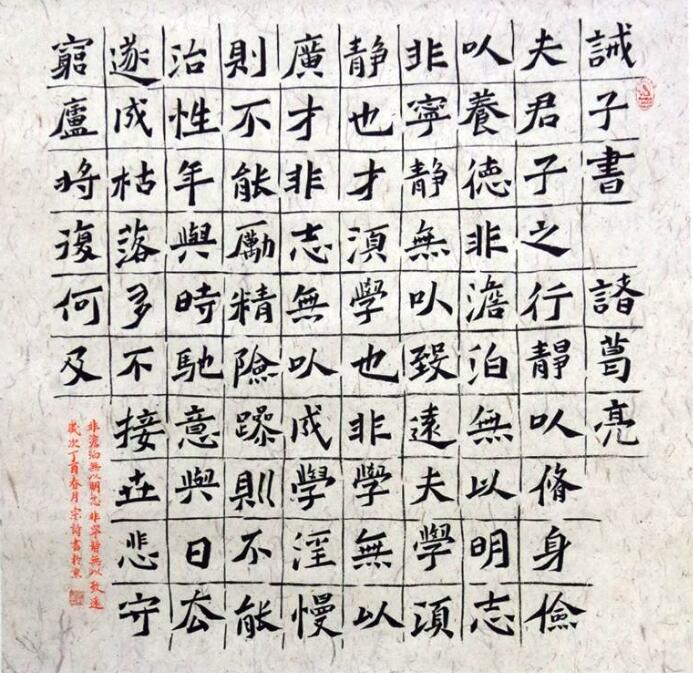 誡子書 諸葛亮
夫君子之行靜以脩身儉
以養德非澹泊無以明志
非寧静無以致遠夫學須
静也才須學也非學無以
廣才非志無以成學淫慢
則不能勵精險躁則不能
治性年與時馳意與日去
遂成枯落多不接世悲守
窮廬將復何及
非澹泊無以明志非寧靜無以致遠
歲次丁酉春月宗詩書於京